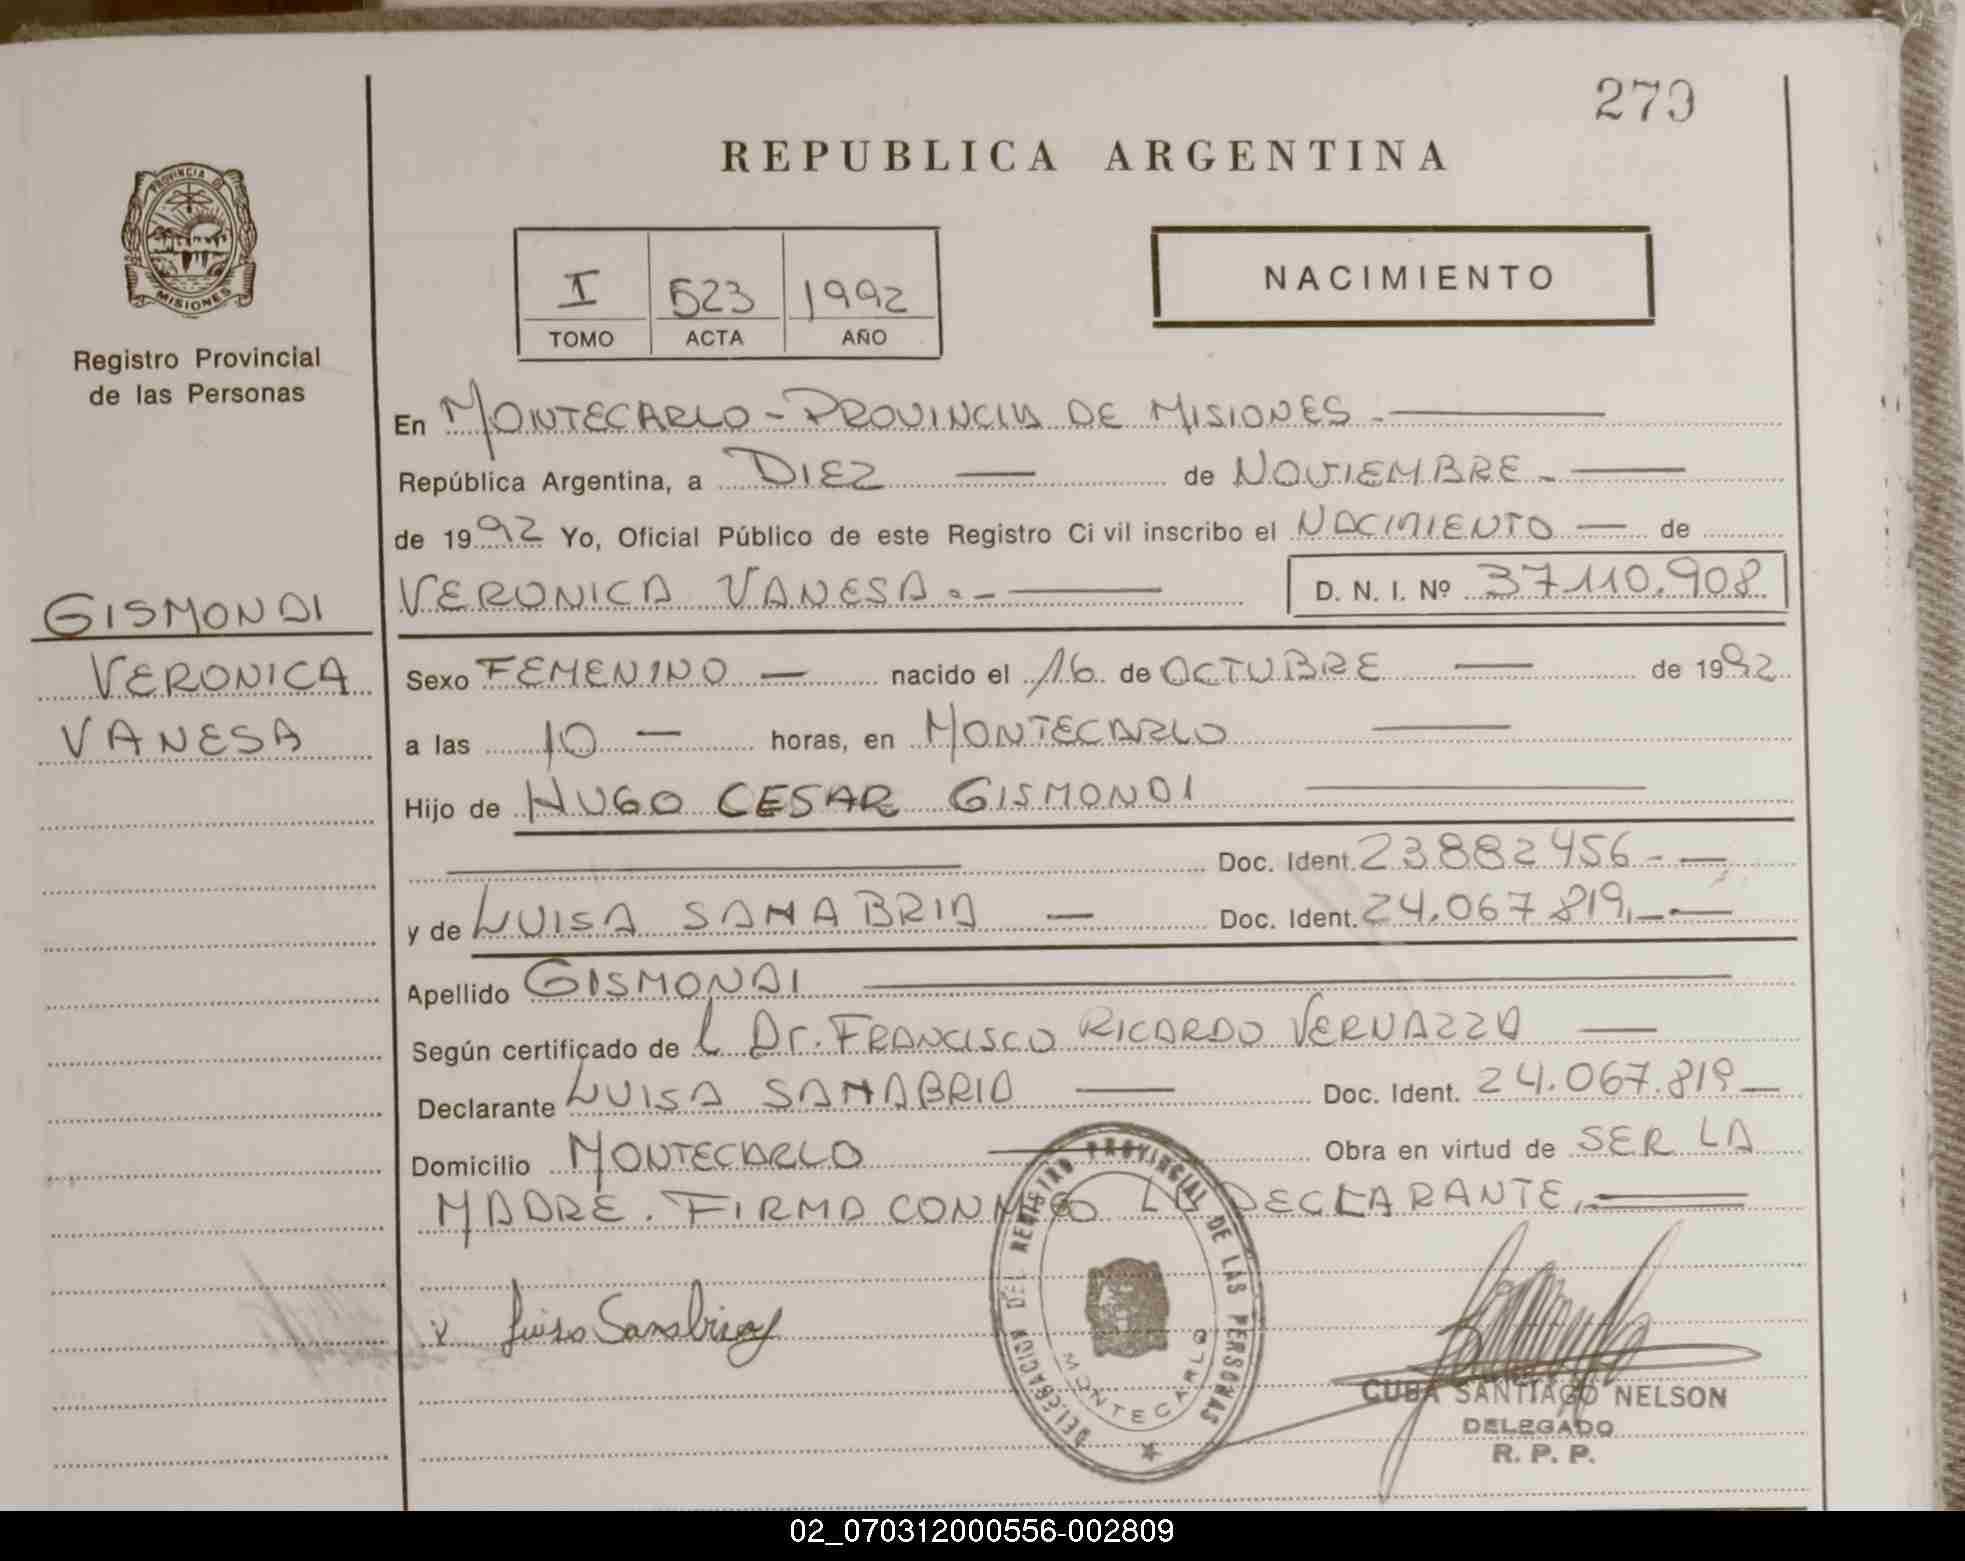 270
REPUBLICA ARGENTINA
PROVINCIA DE
MISIONES
Registro Provincial
de las Personas
I 523 1992
TOMO ACTA AÑO
NACIMIENTO
En MONTECARLO - PROVINCIA DE MISIONES.
República Argentina, a DIEZ de NOVIEMBRE
de 1992 Yo, Oficial Público de este Registro Civil inscribo el NACIMIENTO de
VERONICA VANESA.- D. N. I. Nº 37110.908
GISMONDI
VERONICA
VANESA
Sexo FEMENINO nacido el 16 de OCTUBRE de 1992
a las 10 horas, en MONTECARLO
Hijo de HUGO CESAR GISMONDI
Doc. Ident. 23882456
y de LUISA SANABRIA Doc. Ident. 24.067.819.
Apellido GISMONDI
Según certificado del Dr. FRANCISCO RICARDO VERNAZZA
Declarante LUISA SANABRIA Doc. Ident. 24.067.819
Domicilio MONTECARLO Obra en virtud de SER LA
MADRE. FIRMA CONMIGO LA DECLARANTE.
Luisa Sanabria
DELEGACION DEL REGISTRO PROVINCIAL DE LAS PERSONAS
MONTECARLO
CUBA SANTIAGO NELSON
DELEGADO
R. P. P.
02_070312000556-002809